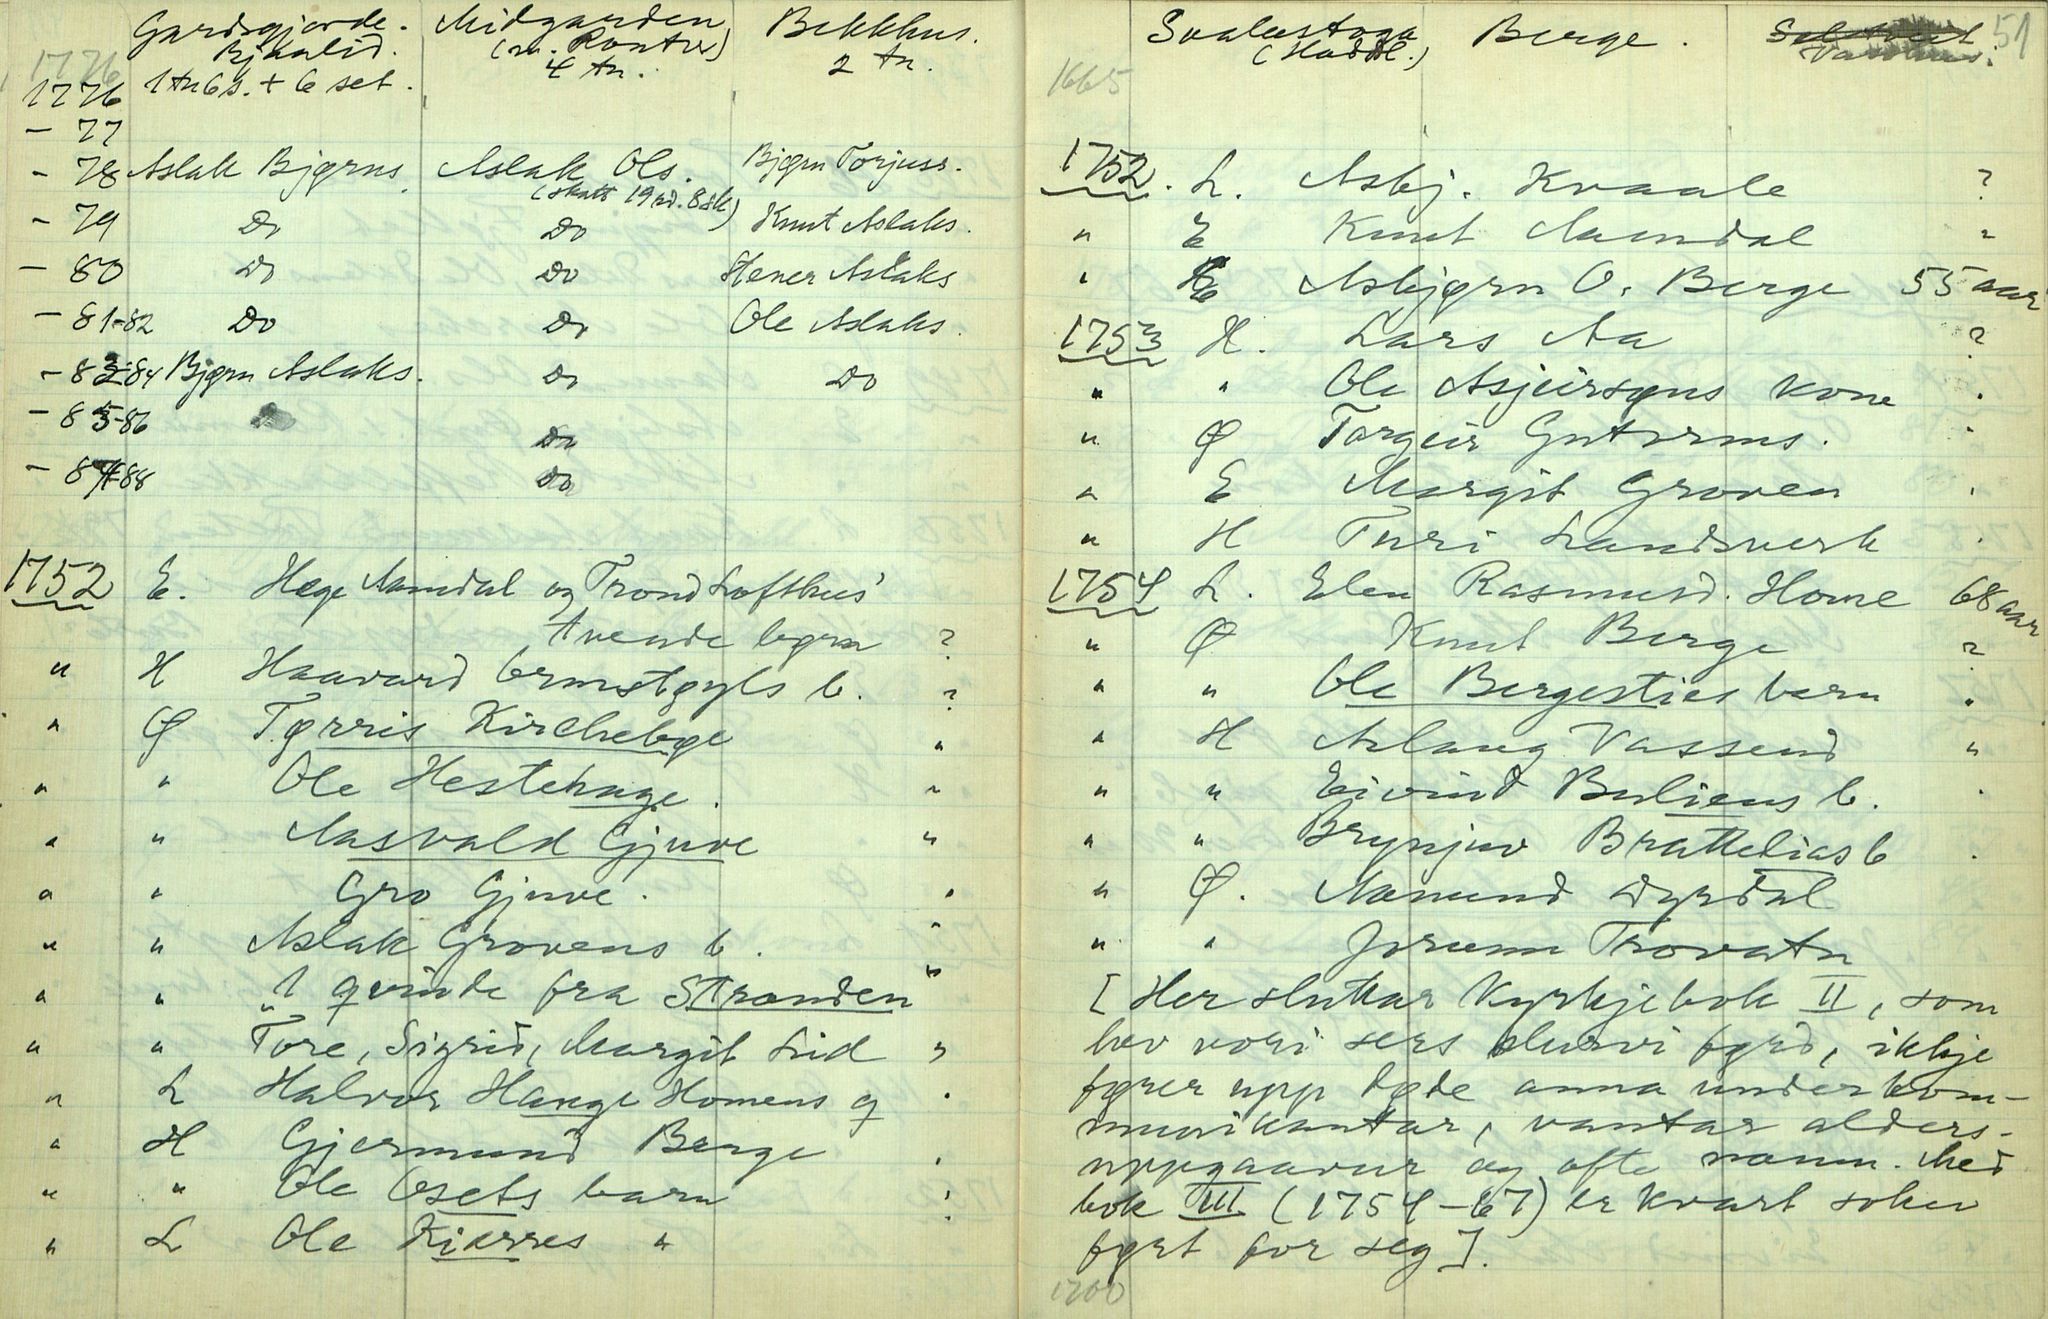 Gardsgjorde. Midgarden Bekkhus.
Bjkalid. (m. Rontvei) 2 tn.
1776 4 tn.
1776 1 tn 6 s. + 6 set.
- 77
- 78 Aslak Bjørns. Aslak Ols. Bjørn Torjuss.
(skatt 19 rd. 8 sk)
- 79 Do Do Knut Aslaks.
- 80 Do Do Stener Aslaks
- 81-82 Do Do Ole Aslaks.
- 83-84 Bjørn Aslaks. Do Do
- 85-86 Do
- 87-88 Do
1752 E. Hege Aamdal og Trond Lofthus'
tvende børn ?
" H Haavard Ormstøyls b. ?
" Ø Tørris Kirchebøe "
" " Ole Hestehage. "
" " Aasvald Gjuve "
" " Gro Gjuve. "
" " Aslak Grovens b. "
" " 1 qvinde fra Stranden "
" " Tore, Sigrid, Margit Lid "
" L Halvor Hauge Homens q "
" H Gjermund Berge "
" " Ole Osets barn "
" L Ole Kierres "
51
Svalastoga Berge.
(Hadd.)
1665
1752. L. Asbj. Kvaale ?
" E Knut Aamdal "
" E Asbjørn O. Berge 55 aar
1753 H. Lars Aa ?
" " Ole Asjeirsøns kone "
" Ø Torgeir Guttorms. "
" E Margit Groven "
" H Turi Landsverk "
1754 L. Elen Rasmusd. Home 68 aar
" Ø Knut Berge ?
" " Ole Bergesties barn "
" H Aslaug Vassend "
" " Eivind Buliens b. "
" " Brynjuv Brattelias b "
" Ø. Aamund Dyrdal
" " Jorunn Trovatn
[Her sluttar Kyrkjebok II, som
hev vori sers slurvi førd, ikkje
fører upp døde anna under kom-
munikantar, vantar alders-
uppgaavur og ofte namn. Med
bok III (1754-67) er kvart sokn
ført for seg].
1700